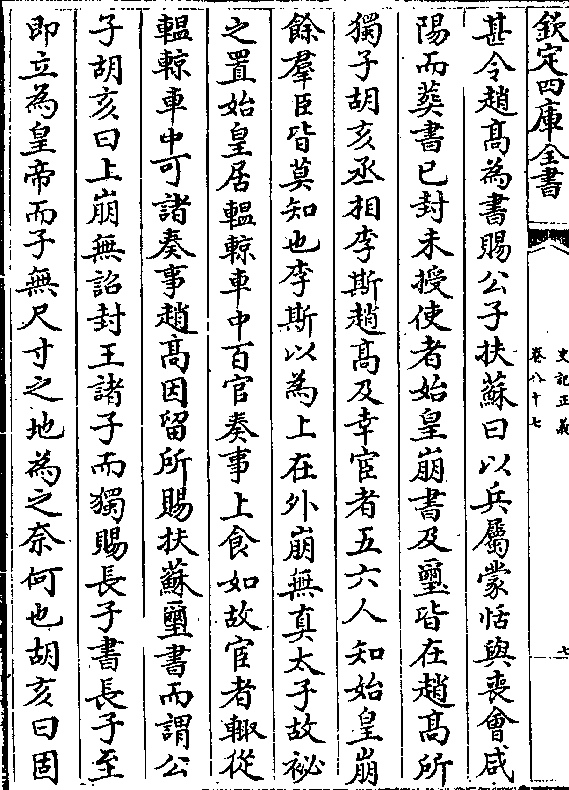 欽定四庫全書
史記正義
卷八十七
七
甚令趙髙為書賜公子扶蘇曰以兵屬蒙恬與喪會咸
陽而葬書已封未授使者始皇崩書及璽皆在趙髙所
獨子胡亥丞相李斯趙髙及幸宦者五六人知始皇崩
餘羣臣皆莫知也李斯以為上在外崩無真太子故祕
之置始皇居轀輬車中百官奏事上食如故宦者輙從
轀輬車中可諸奏事趙髙因留所賜扶蘇璽書而謂公
子胡亥曰上崩無詔封王諸子而獨賜長子書長子至
即立為皇帝而子無尺寸之地為之奈何也胡亥曰固